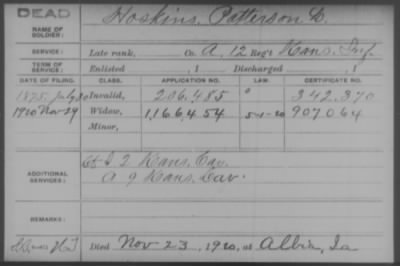 DEAD
NAME OF SOLDIER: Hoskins, Patterson D.
SERVICE: Late rank, Co. A, 12 Reg't Kans. Inf.
TERM OF SERVICE: Enlisted , 1 Discharged , 1
DATE OF FILING. CLASS. APPLICATION NO. LAW. CERTIFICATE NO.
1875, July 30 Invalid, 206,485 342,370
1920 Nov 29 Widow, 1,166,454 5-1-20 907064
Minor,
ADDITIONAL SERVICES: I 2 Kans. Cav.
A 9 Kans. Cav.
REMARKS:
Died Nov 23, 1920, at Albia, Ia